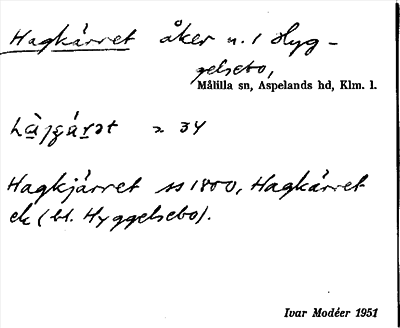 Hagkärret åker n. 1 Hyg-
gelsebo,
Målilla sn, Aspelands hd, Klm. l.
34
Hagkjärret ss 1800, Hagkärret
ek (bl. Hyggelsebo).
Ivar Modéer 1951